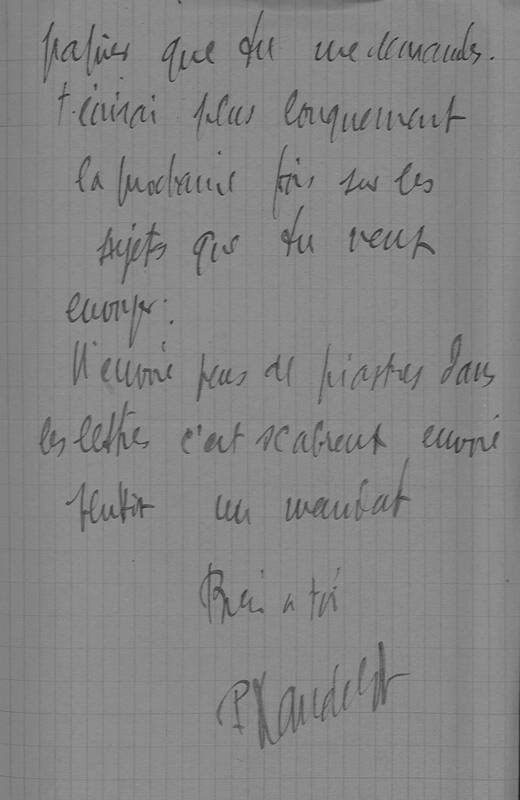 papier que tu me demandes.
t'écrirai plus longuement
la prochaine fois sur les
sujets que tu veux
envoyer.
N'envoie pas de piastres dans
les lettres c'est scabreux envoie
plutôt un mandat
Bien à toi
P